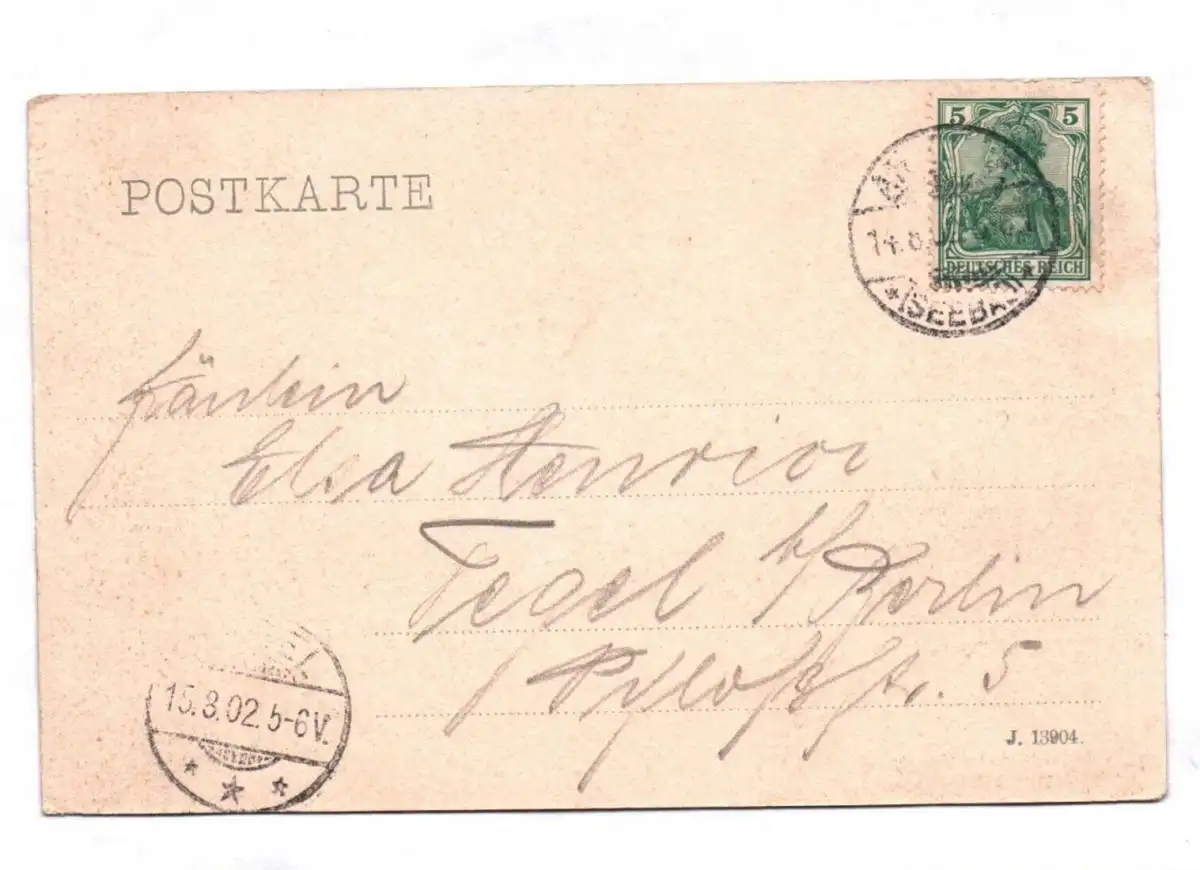 POSTKARTE
5 5
DEUTSCHES REICH
14.8.0
* (SEEBAD) *
Fräulein
Elsa Henrici
Tegel b/Berlin
Schloßstr. 5
15.8.02. 5-6V.
J. 13904.